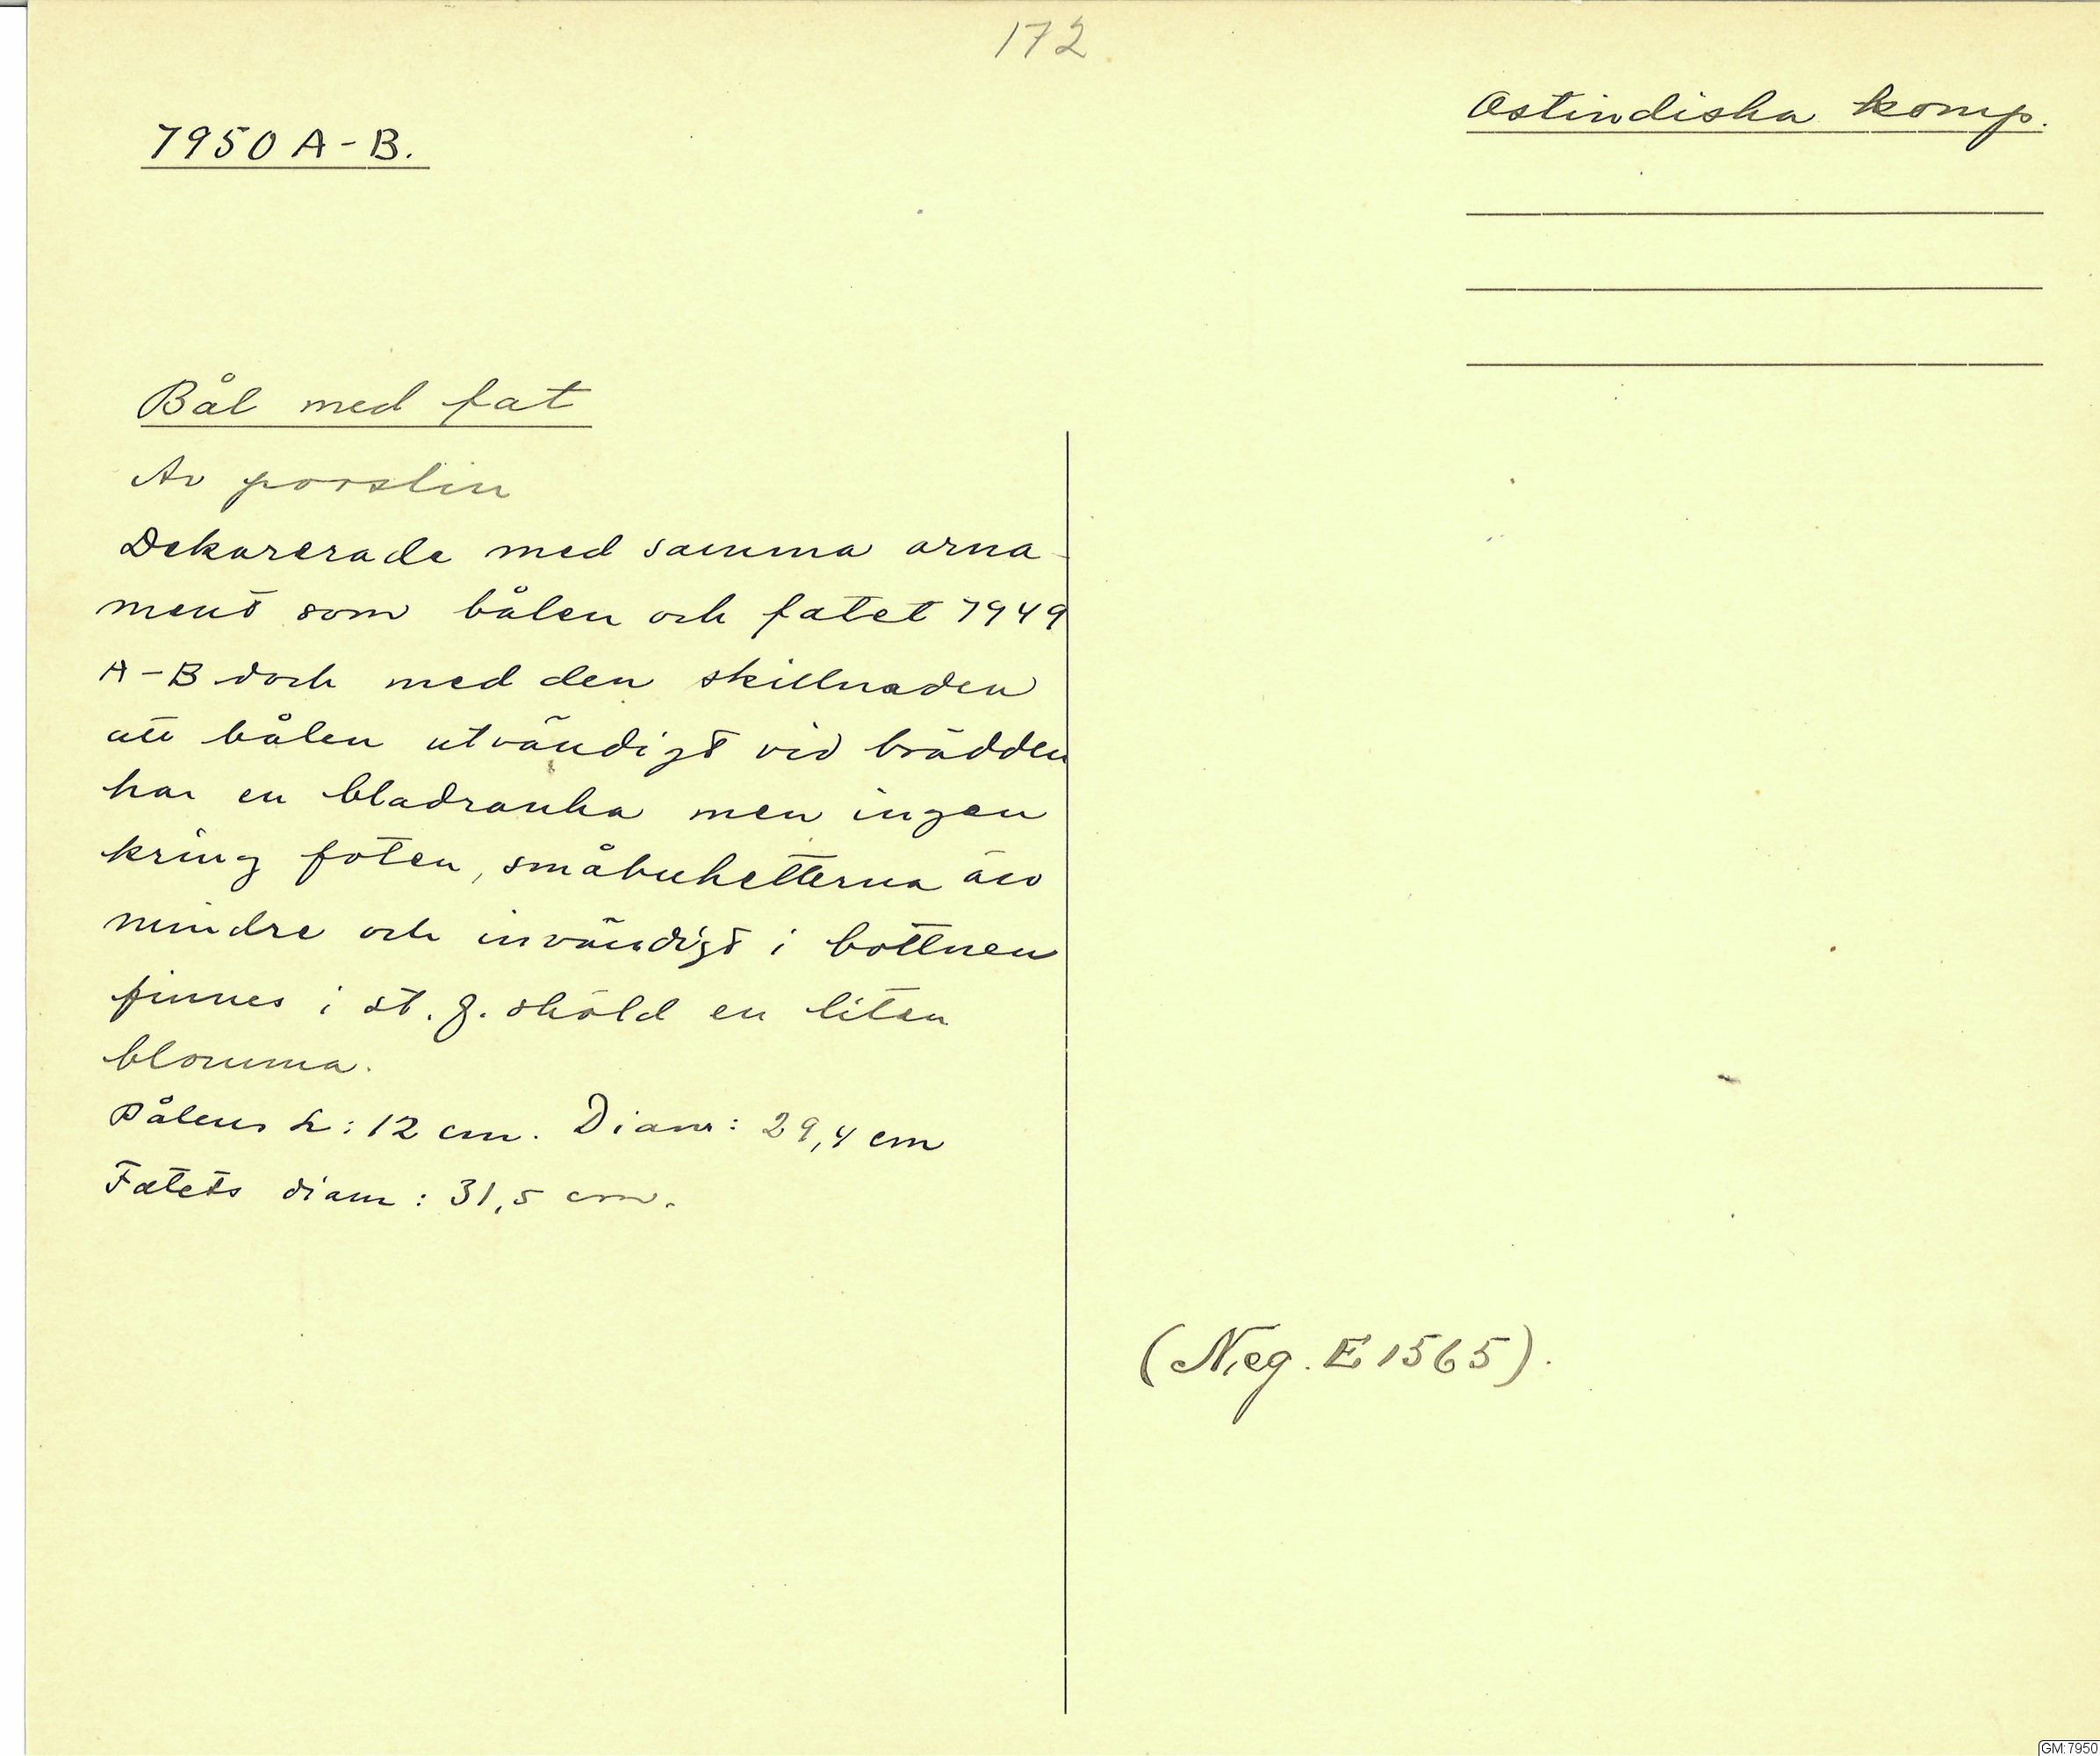 172
7950 A-B.
Ostindiska komp.
Bål med fat
Av porslin
Dekorerade med samma orna-
ment som bålen och fatet 7949
A-B dock med den skillnaden
att bålen utvändigt vid brädden
har en bladranka men ingen
kring foten, småbuketterna äro
mindre och invändigt i bottnen
finnes i st. f. sköld en liten
blomma.
Bålens h: 12 cm. Diam: 29,4 cm
Fatets diam: 31,5 cm.
(Neg. E 1565).
GM:7950